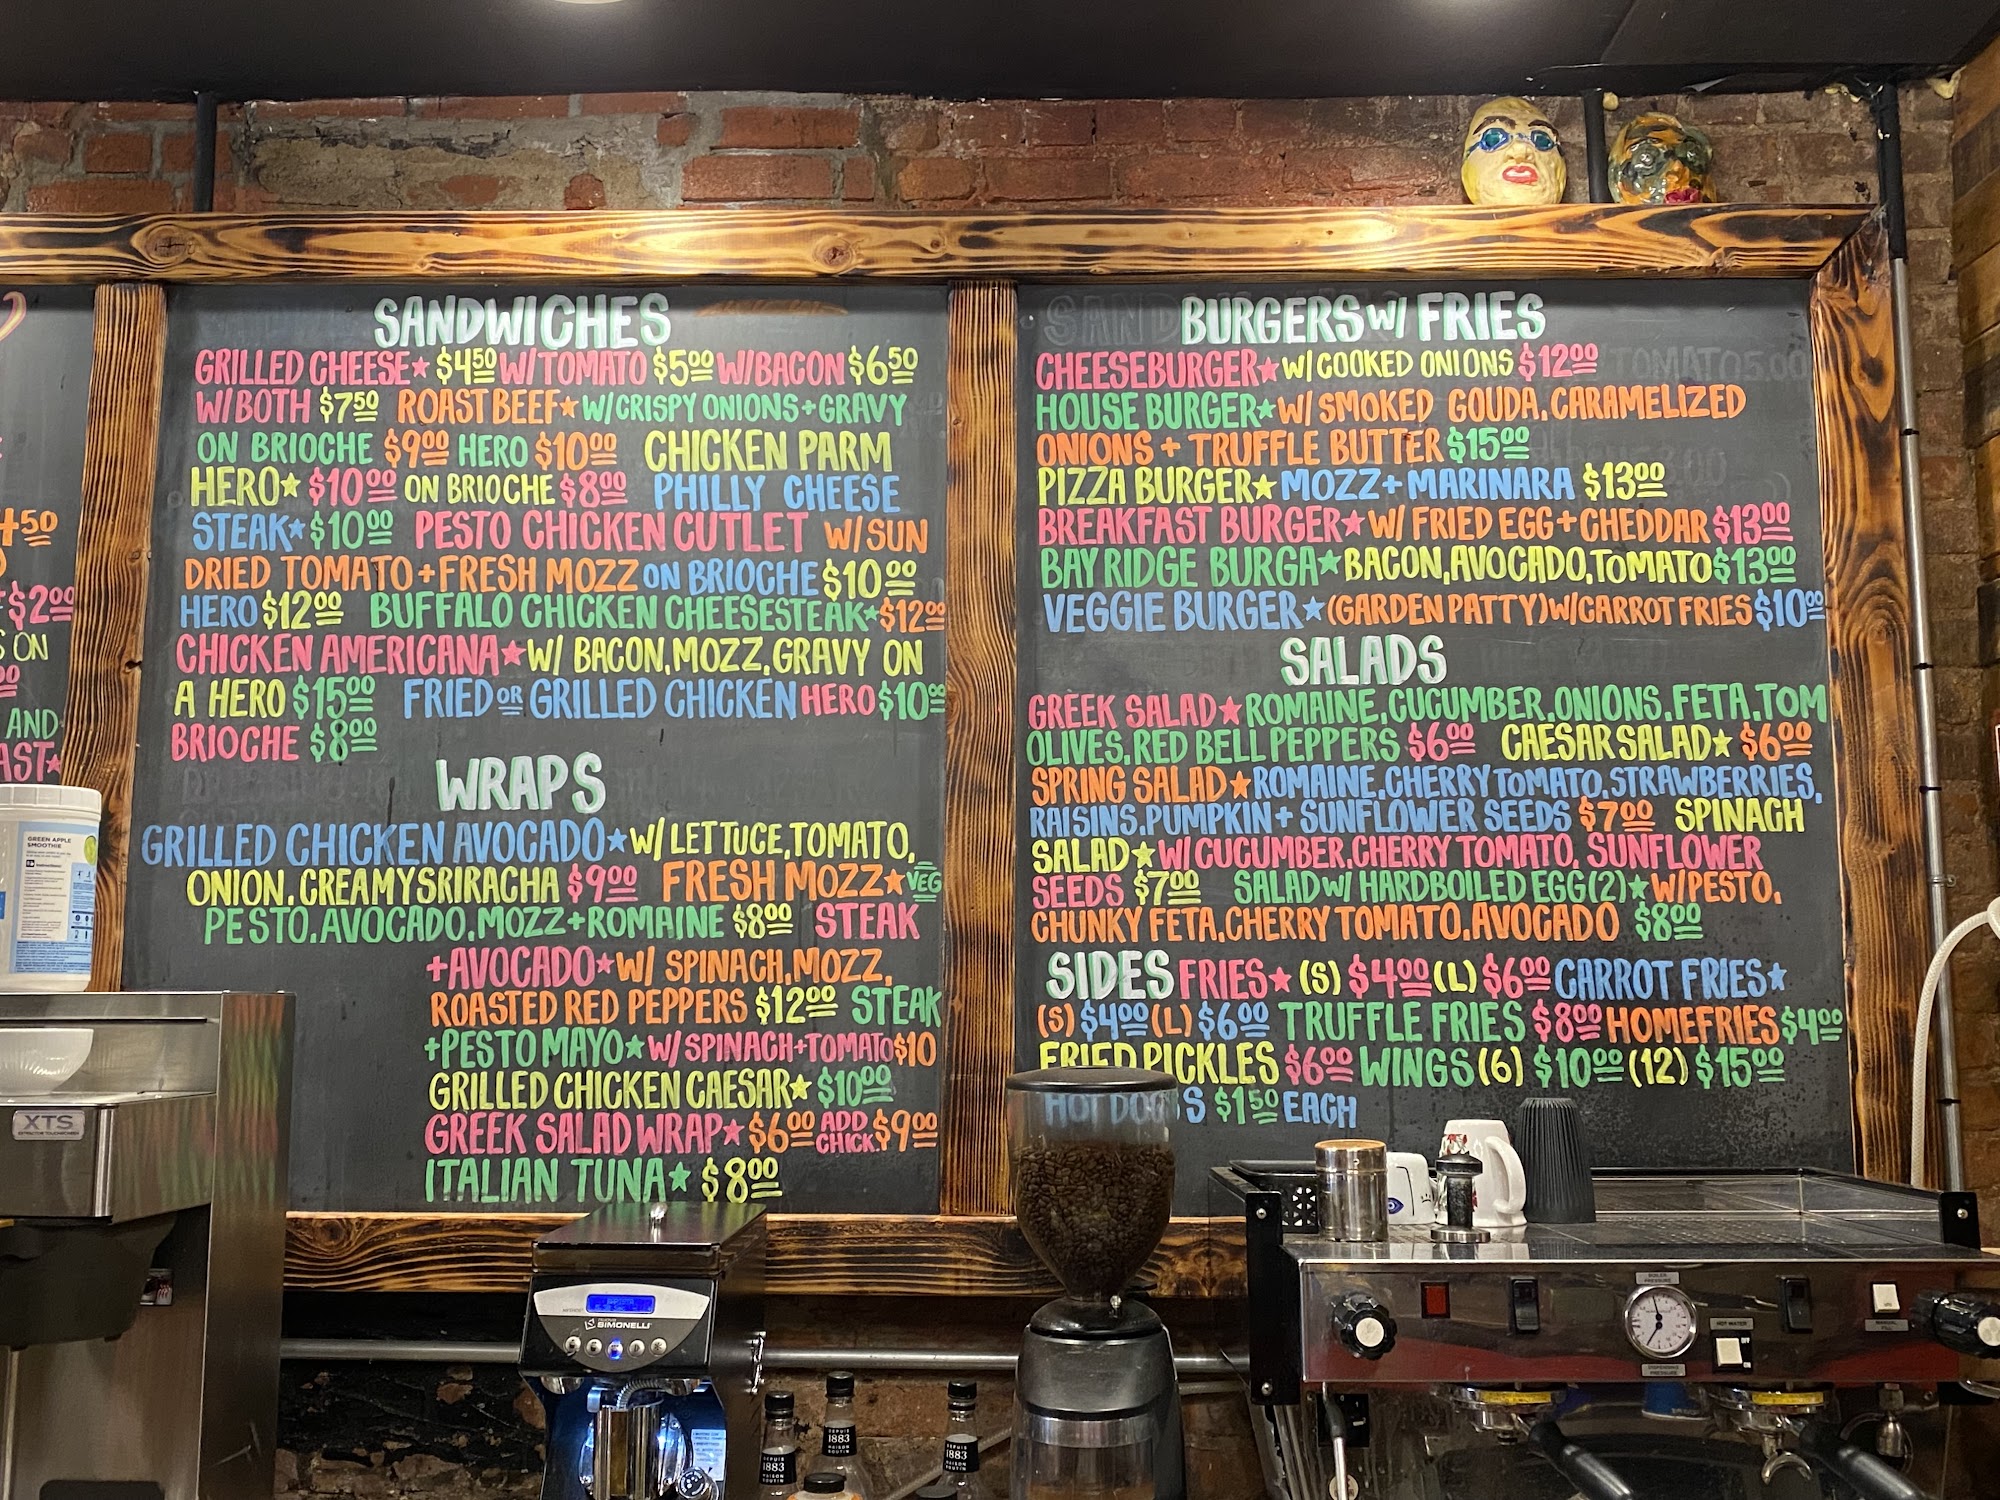 SANDWICHES
GRILLED CHEESE★ $4.50 W/TOMATO $5.00 W/BACON $6.50
W/BOTH $7.50 ROAST BEEF★ W/CRISPY ONIONS+GRAVY
ON BRIOCHE $9.00 HERO $10.00 CHICKEN PARM
HERO★ $10.00 ON BRIOCHE $8.00 PHILLY CHEESE
STEAK★ $10.00 PESTO CHICKEN CUTLET W/SUN
DRIED TOMATO+FRESH MOZZ ON BRIOCHE $10.00
HERO $12.00 BUFFALO CHICKEN CHEESESTEAK★ $12.00
CHICKEN AMERICANA★ W/ BACON, MOZZ, GRAVY ON
A HERO $15.00 FRIED OR GRILLED CHICKEN HERO $10.00
BRIOCHE $8.00
WRAPS
GRILLED CHICKEN AVOCADO★ W/LETTUCE, TOMATO,
ONION, CREAMY SRIRACHA $9.00 FRESH MOZZ★ VEG
PESTO, AVOCADO, MOZZ+ROMAINE $8.00 STEAK
+AVOCADO★ W/ SPINACH, MOZZ,
ROASTED RED PEPPERS $12.00 STEAK
+PESTO MAYO★ W/SPINACH+TOMATO $10
GRILLED CHICKEN CAESAR★ $10.00
GREEK SALAD WRAP★ $6.00 ADD CHICK. $9.00
ITALIAN TUNA★ $8.00
BURGERS W/ FRIES
CHEESEBURGER★ W/COOKED ONIONS $12.00
HOUSE BURGER★ W/SMOKED GOUDA, CARAMELIZED
ONIONS + TRUFFLE BUTTER $15.00
PIZZA BURGER★ MOZZ+MARINARA $13.00
BREAKFAST BURGER★ W/FRIED EGG+CHEDDAR $13.00
BAY RIDGE BURGA★ BACON, AVOCADO, TOMATO $13.00
VEGGIE BURGER★ (GARDEN PATTY) W/CARROT FRIES $10.00
SALADS
GREEK SALAD★ ROMAINE, CUCUMBER, ONIONS, FETA, TOM
OLIVES, RED BELL PEPPERS $6.00 CAESAR SALAD★ $6.00
SPRING SALAD★ ROMAINE, CHERRY TOMATO, STRAWBERRIES,
RAISINS, PUMPKIN + SUNFLOWER SEEDS $7.00 SPINACH
SALAD★ W/CUCUMBER, CHERRY TOMATO, SUNFLOWER
SEEDS $7.00 SALAD W/ HARDBOILED EGG(2)★ W/PESTO,
CHUNKY FETA, CHERRY TOMATO, AVOCADO $8.00
SIDES FRIES★ (S) $4.00 (L) $6.00 CARROT FRIES★
(S) $4.00 (L) $6.00 TRUFFLE FRIES $8.00 HOMEFRIES $4.00
FRIED PICKLES $6.00 WINGS (6) $10.00 (12) $15.00
HOT DOGS $1.50 EACH
$2.00
S ON
AND
AST★
GREEN APPLE
SMOOTHIE
XTS
SIMONELLI
DEPUIS
1883
MAISON
ROUTIN
1883
1883
HOT WATER